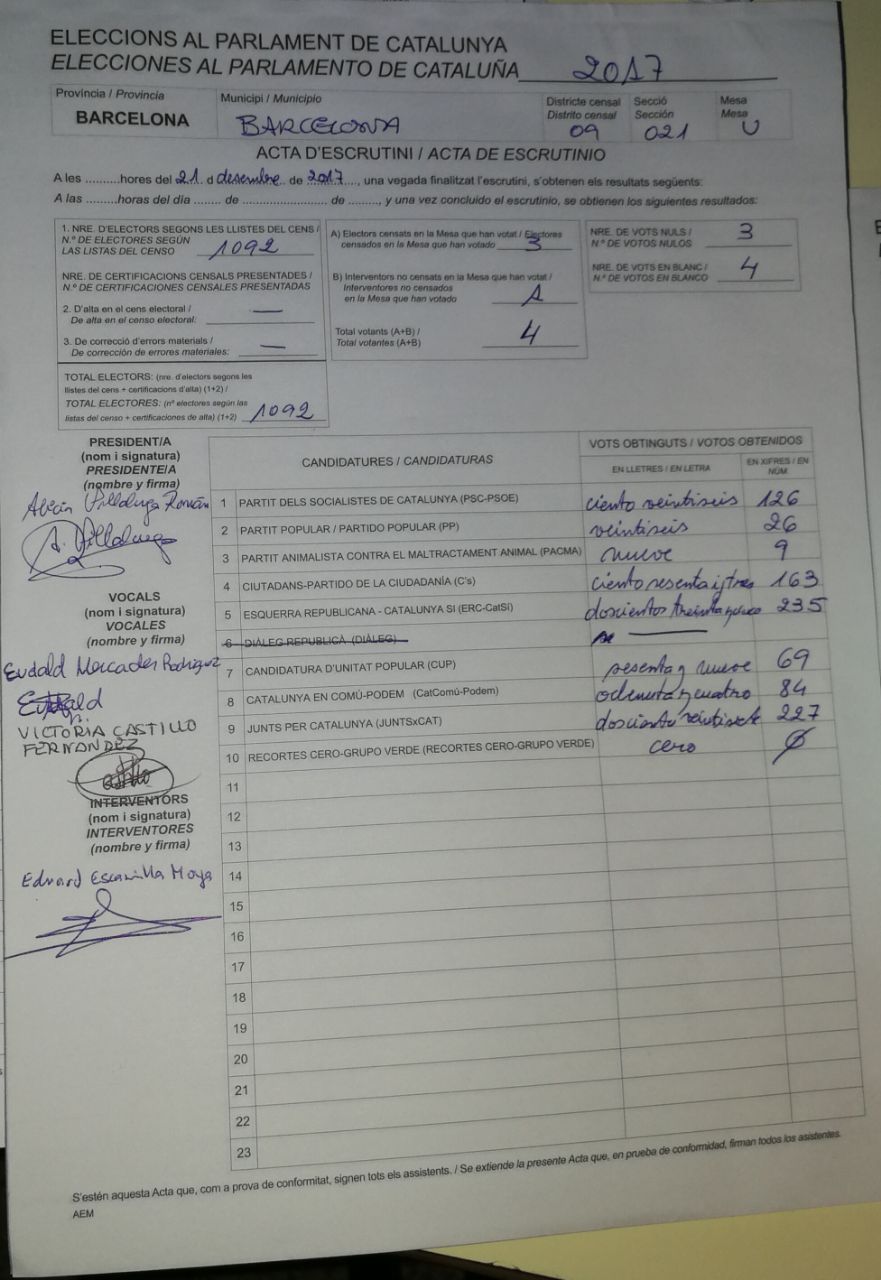 ELECCIONS AL PARLAMENT DE CATALUNYA
ELECCIONES AL PARLAMENTO DE CATALUÑA 2017
Provincia / Provincia
BARCELONA
Municipi / Municipio
BARCELONA
Districte censal
Distrito censal
09
Secció
Sección
021
Mesa
Mesa
U
ACTA D'ESCRUTINI / ACTA DE ESCRUTINIO
A les ..........hores del 21 d desembre de 2017...., una vegada finalitzat l'escrutini, s'obtenen els resultats següents:
A las ..........horas del día ........ de .................... de ........, y una vez concluido el escrutinio, se obtienen los siguientes resultados:
1. NRE. D'ELECTORS SEGONS LES LLISTES DEL CENS /
N.º DE ELECTORES SEGÚN
LAS LISTAS DEL CENSO 1092
NRE. DE CERTIFICACIONS CENSALS PRESENTADES /
N.º DE CERTIFICACIONES CENSALES PRESENTADAS
2. D'alta en el cens electoral /
De alta en el censo electoral: —
3. De correcció d'errors materials /
De corrección de errores materiales: —
TOTAL ELECTORS: (nre. d'electors segons les
llistes del cens + certificacions d'alta) (1+2) /
TOTAL ELECTORES: (nº electores según las
listas del censo + certificaciones de alta) (1+2) 1092
A) Electors censats en la Mesa que han votat / Electores
censados en la Mesa que han votado 3
B) Interventors no censats en la Mesa que han votat /
Interventores no censados
en la Mesa que han votado 1
Total votants (A+B) /
Total votantes (A+B) 4
NRE. DE VOTS NULS /
N.º DE VOTOS NULOS 3
NRE. DE VOTS EN BLANC /
N.º DE VOTOS EN BLANCO 4
PRESIDENT/A
(nom i signatura)
PRESIDENTE/A
(nombre y firma)
A. Villaluenga
VOCALS
(nom i signatura)
VOCALES
(nombre y firma)
Eudald Mercader Rodriguez
Eudald
VICTORIA CASTILLO
FERNANDEZ
INTERVENTORS
(nom i signatura)
INTERVENTORES
(nombre y firma)
Eduard Escamilla Moya
CANDIDATURES / CANDIDATURAS
VOTS OBTINGUTS / VOTOS OBTENIDOS
EN LLETRES / EN LETRA
EN XIFRES / EN NÚM.
1 PARTIT DELS SOCIALISTES DE CATALUNYA (PSC-PSOE) ciento veintiseis 126
2 PARTIT POPULAR / PARTIDO POPULAR (PP) veintiseis 26
3 PARTIT ANIMALISTA CONTRA EL MALTRACTAMENT ANIMAL (PACMA) nueve 9
4 CIUTADANS-PARTIDO DE LA CIUDADANÍA (C's) ciento sesenta y tres 163
5 ESQUERRA REPUBLICANA - CATALUNYA SI (ERC-CatSí) doscientos treinta y cinco 235
6 DIÀLEG REPUBLICÀ (DIÀLEG)
7 CANDIDATURA D'UNITAT POPULAR (CUP) sesenta y nueve 69
8 CATALUNYA EN COMÚ-PODEM (CatComú-Podem) ochenta y cuatro 84
9 JUNTS PER CATALUNYA (JUNTSxCAT) doscientos veintisiete 227
10 RECORTES CERO-GRUPO VERDE (RECORTES CERO-GRUPO VERDE) cero 0
11
12
13
14
15
16
17
18
19
20
21
22
23
S'estén aquesta Acta que, com a prova de conformitat, signen tots els assistents. / Se extiende la presente Acta que, en prueba de conformidad, firman todos los asistentes.
AEM